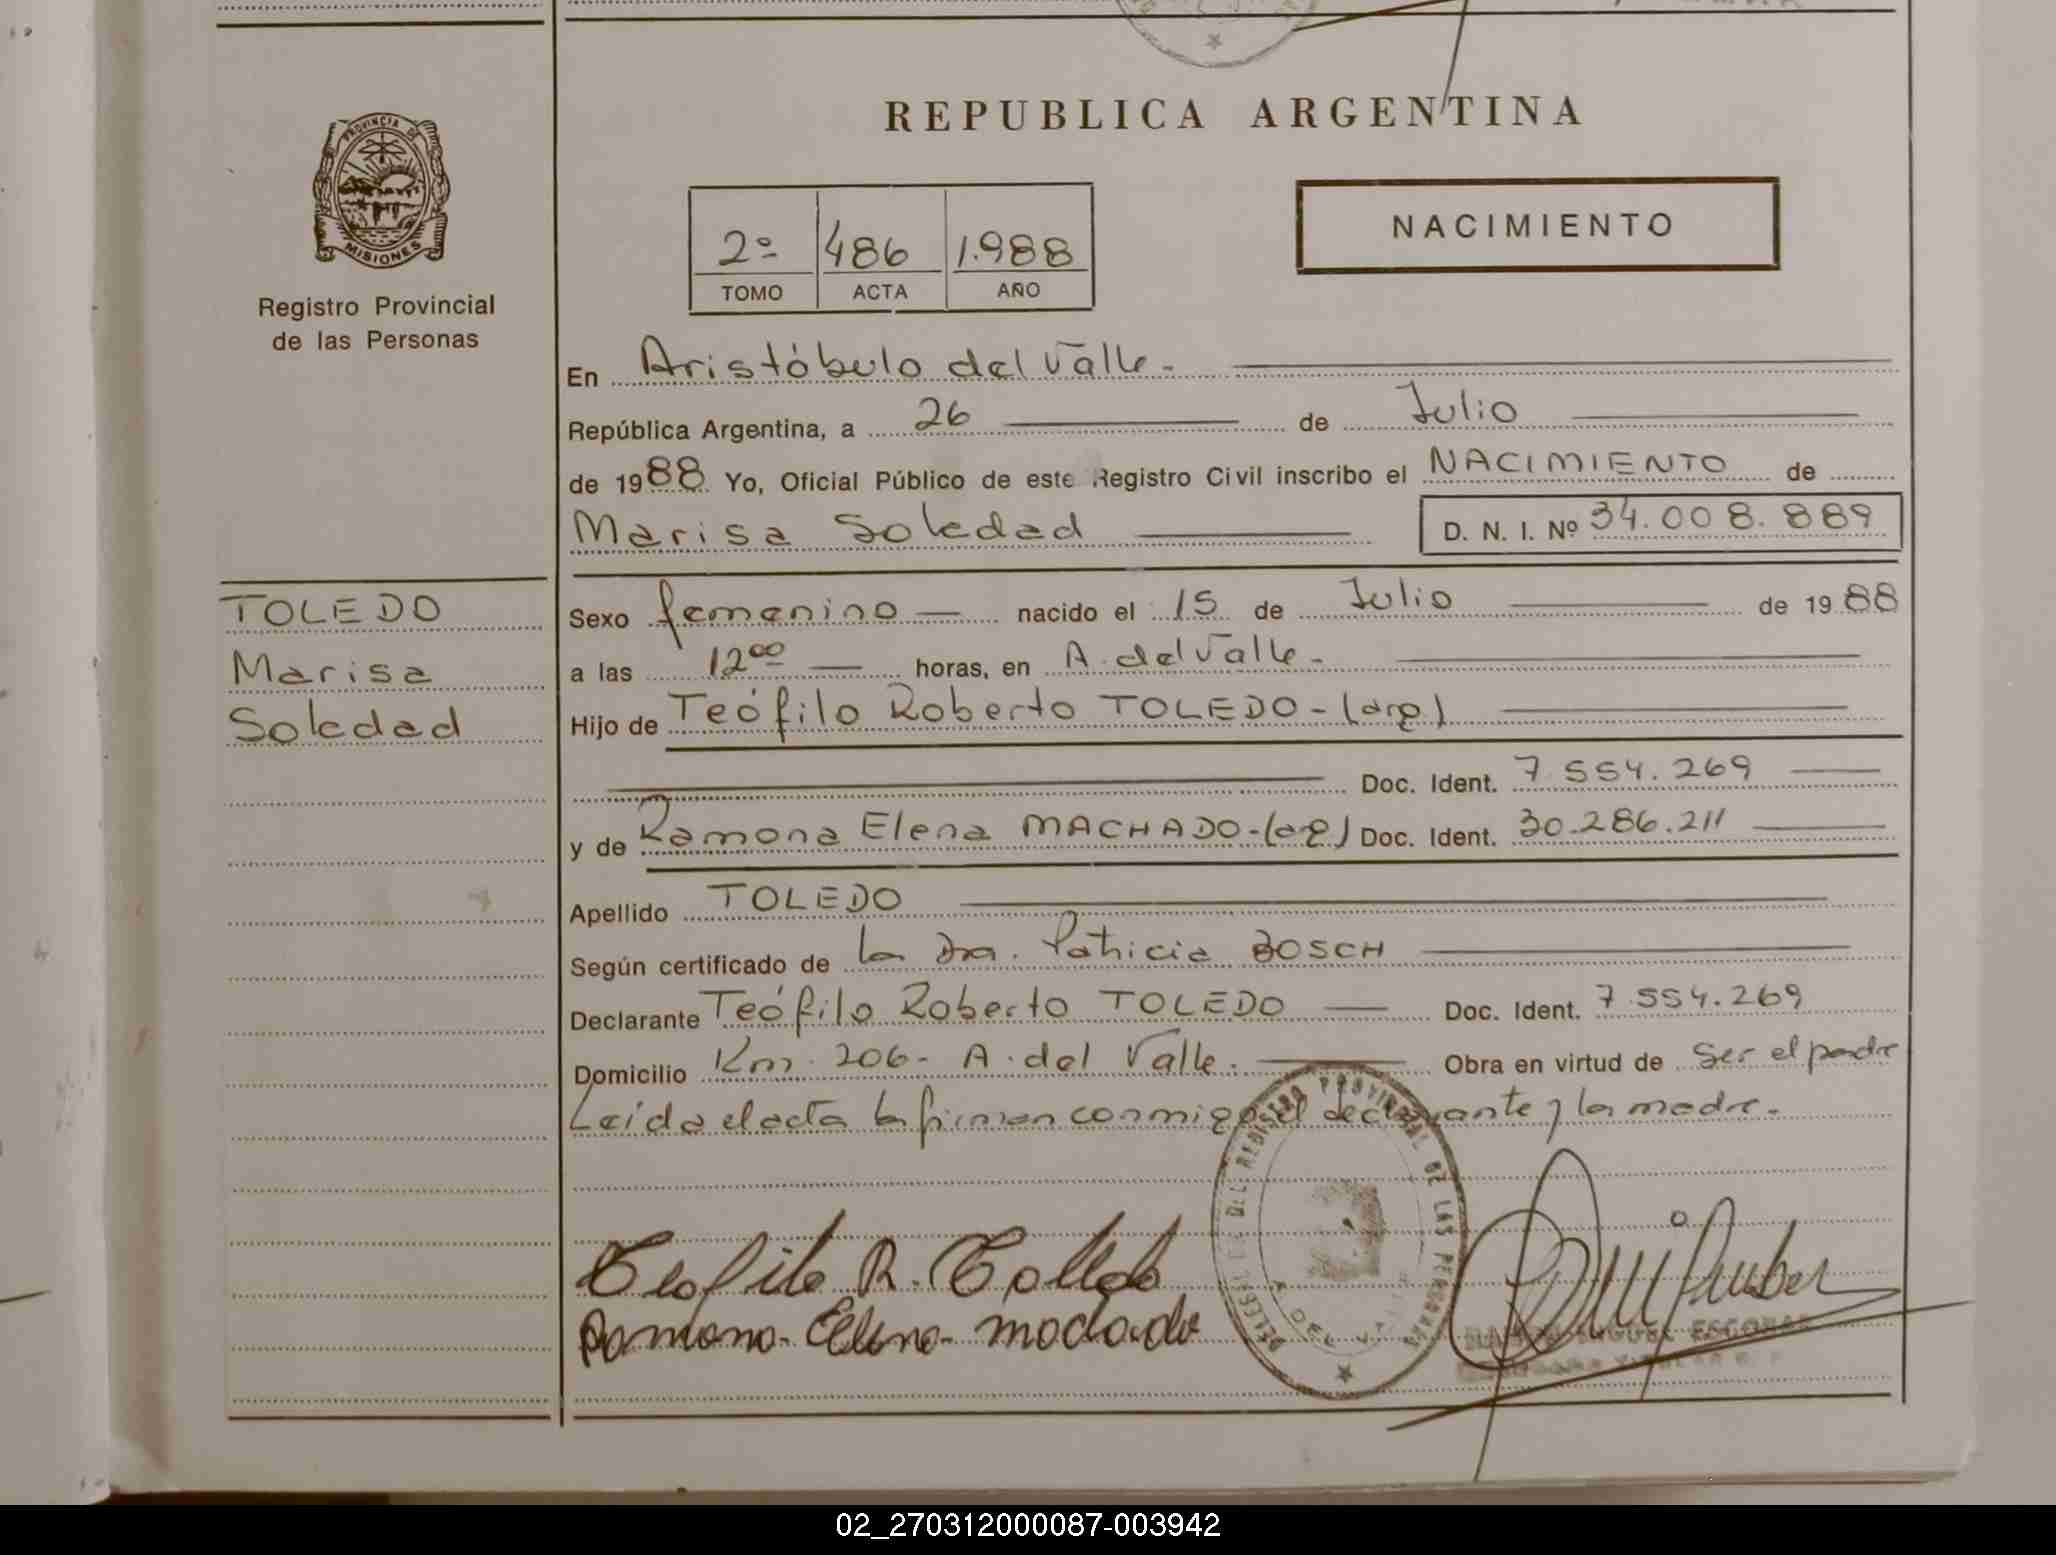 REPUBLICA ARGENTINA
PROVINCIA DE
MISIONES
Registro Provincial
de las Personas
2º 486 1.988
TOMO ACTA AÑO
NACIMIENTO
En Aristóbulo del Valle.
República Argentina, a 26 de Julio
de 1988 Yo, Oficial Público de este Registro Civil inscribo el NACIMIENTO de
Marisa Soledad D. N. I. Nº 34.008.889
TOLEDO
Marisa
Soledad
Sexo femenino nacido el 15 de Julio de 1988
a las 12⁰⁰ horas, en A. del Valle.
Hijo de Teófilo Roberto TOLEDO-(arg)
Doc. Ident. 7.554.269
y de Ramona Elena MACHADO-(arg) Doc. Ident. 30.286.211
Apellido TOLEDO
Según certificado de la Dra. Patricia BOSCH
Declarante Teófilo Roberto TOLEDO Doc. Ident. 7.554.269
Domicilio Km. 206- A. del Valle. Obra en virtud de ser el padre
Leída el acta la firman conmigo el declarante y la madre.
Teofilo R. Tolledo
Ramona Elena machado
DEL REGISTRO PROVINCIAL DE LAS PERSONAS
A. DEL VALLE
MIGUEL ESCOBAR
02_270312000087-003942